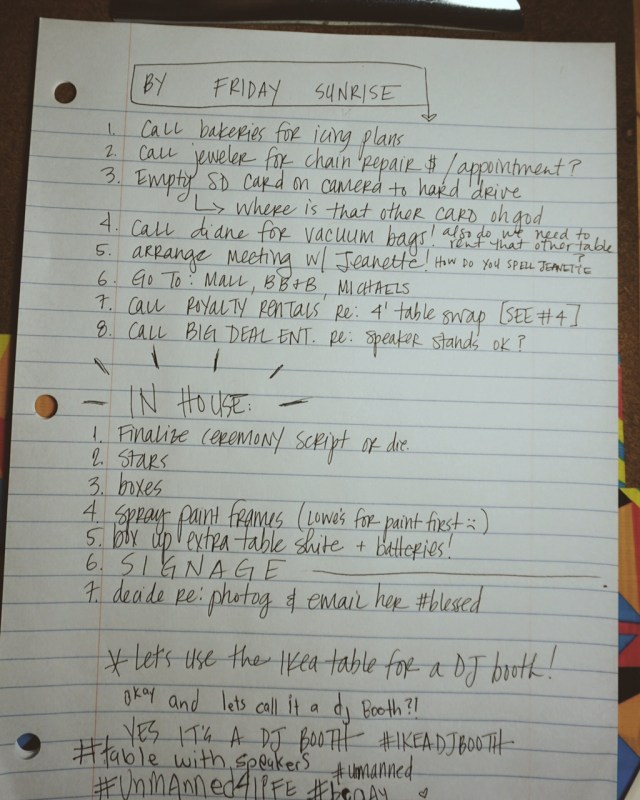 BY FRIDAY SUNRISE
1. Call bakeries for icing plans
2. Call jeweler for chain repair $ / appointment?
3. Empty SD card on camera to hard drive
↳ where is that other CARD oh god
4. Call diane for vacuum bags! also do we need to rent that other table?
5. arrange meeting w/ Jeanette! HOW DO YOU SPELL JEANETTE
6. GO TO: MALL, BB+B, MICHAELS
7. CALL ROYALTY RENTALS re: 4' table swap [SEE #4]
8. CALL BIG DEAL ENT. re: speaker stands ok?
— IN HOUSE: —
1. Finalize ceremony script or die.
2. stars
3. boxes
4. spray paint frames (Lowe's for paint first :)
5. box up extra table shite + batteries!
6. SIGNAGE
7. decide re: photog & email her #blessed
* Let's use the Ikea table for a DJ booth!
okay and lets call it a dj Booth?!
YES IT'S A DJ BOOTH #IKEADJBOOTH
#table with speakers
#unmanned
#UnManned4LIFE